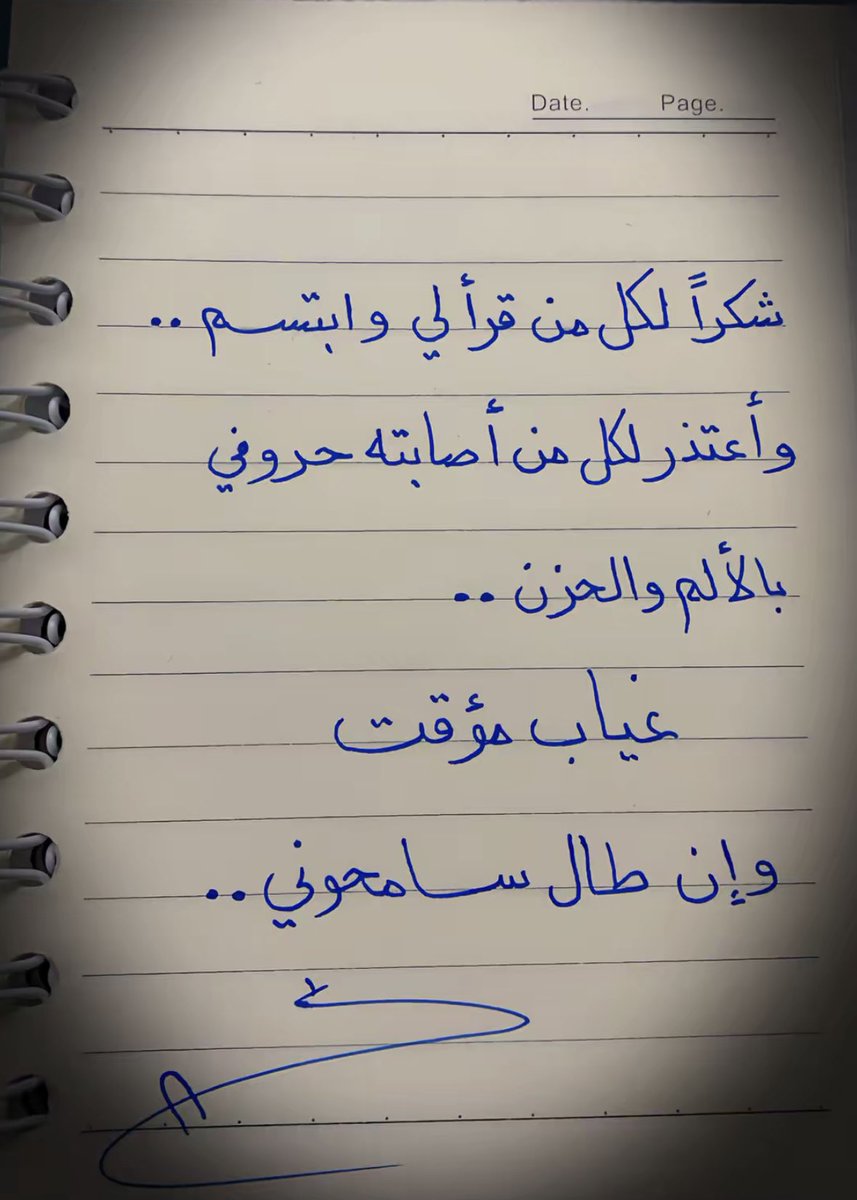 Date. Page.
شكراً لكل من قرأ لي وابتسم ..
وأعتذر لكل من أصابته حروفي
بالألم والحزن ..
غياب مؤقت
وإن طال سامحوني ..